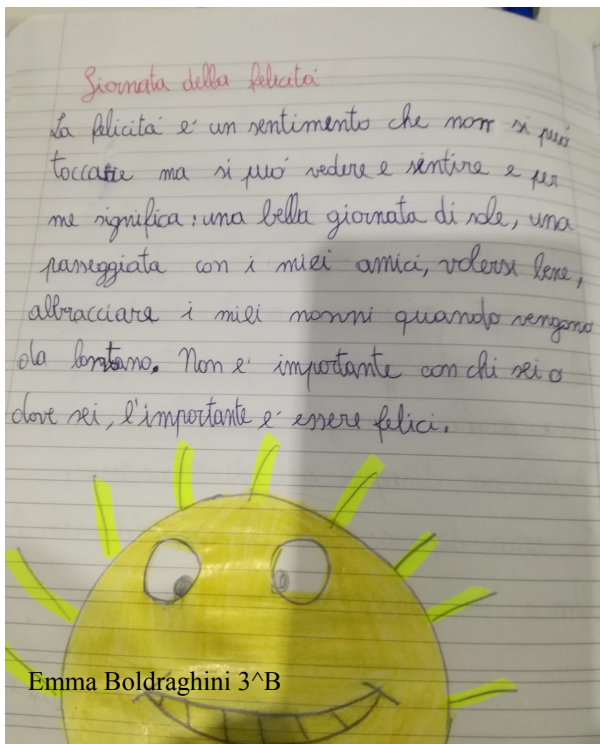 Giornata della felicitá
La felicitá é un sentimento che non si puó
toccare ma si puó vedere e sentire e per
me significa: una bella giornata di sole, una
passeggiata con i miei amici, volersi bene,
abbracciare i miei nonni quando vengono
da lontano. Non é importante con chi sei o
dove sei, l'importante é essere felici.
Emma Boldraghini 3^B